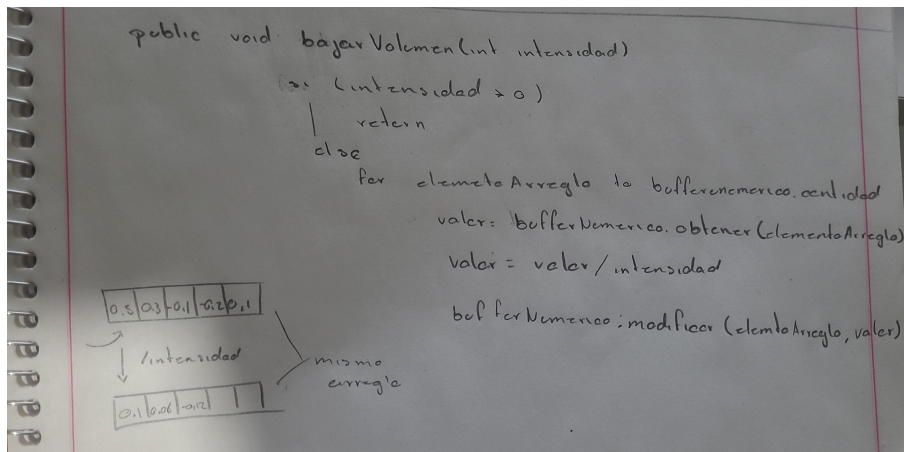 public void bajarVolumen(int intensidad)
si (intensidad > 0)
return
else
for elemetoArreglo to buffernumerico.cantidad
valor= bufferNumerico.obtener(elementoArreglo)
valor = valor/intensidad
bufferNumerico.modificar(elemtoArreglo, valor)
0.5 0.3 -0.1 -0.2 0,1
/intensidad
mismo
arreglo
0.1 0.06 -0.12